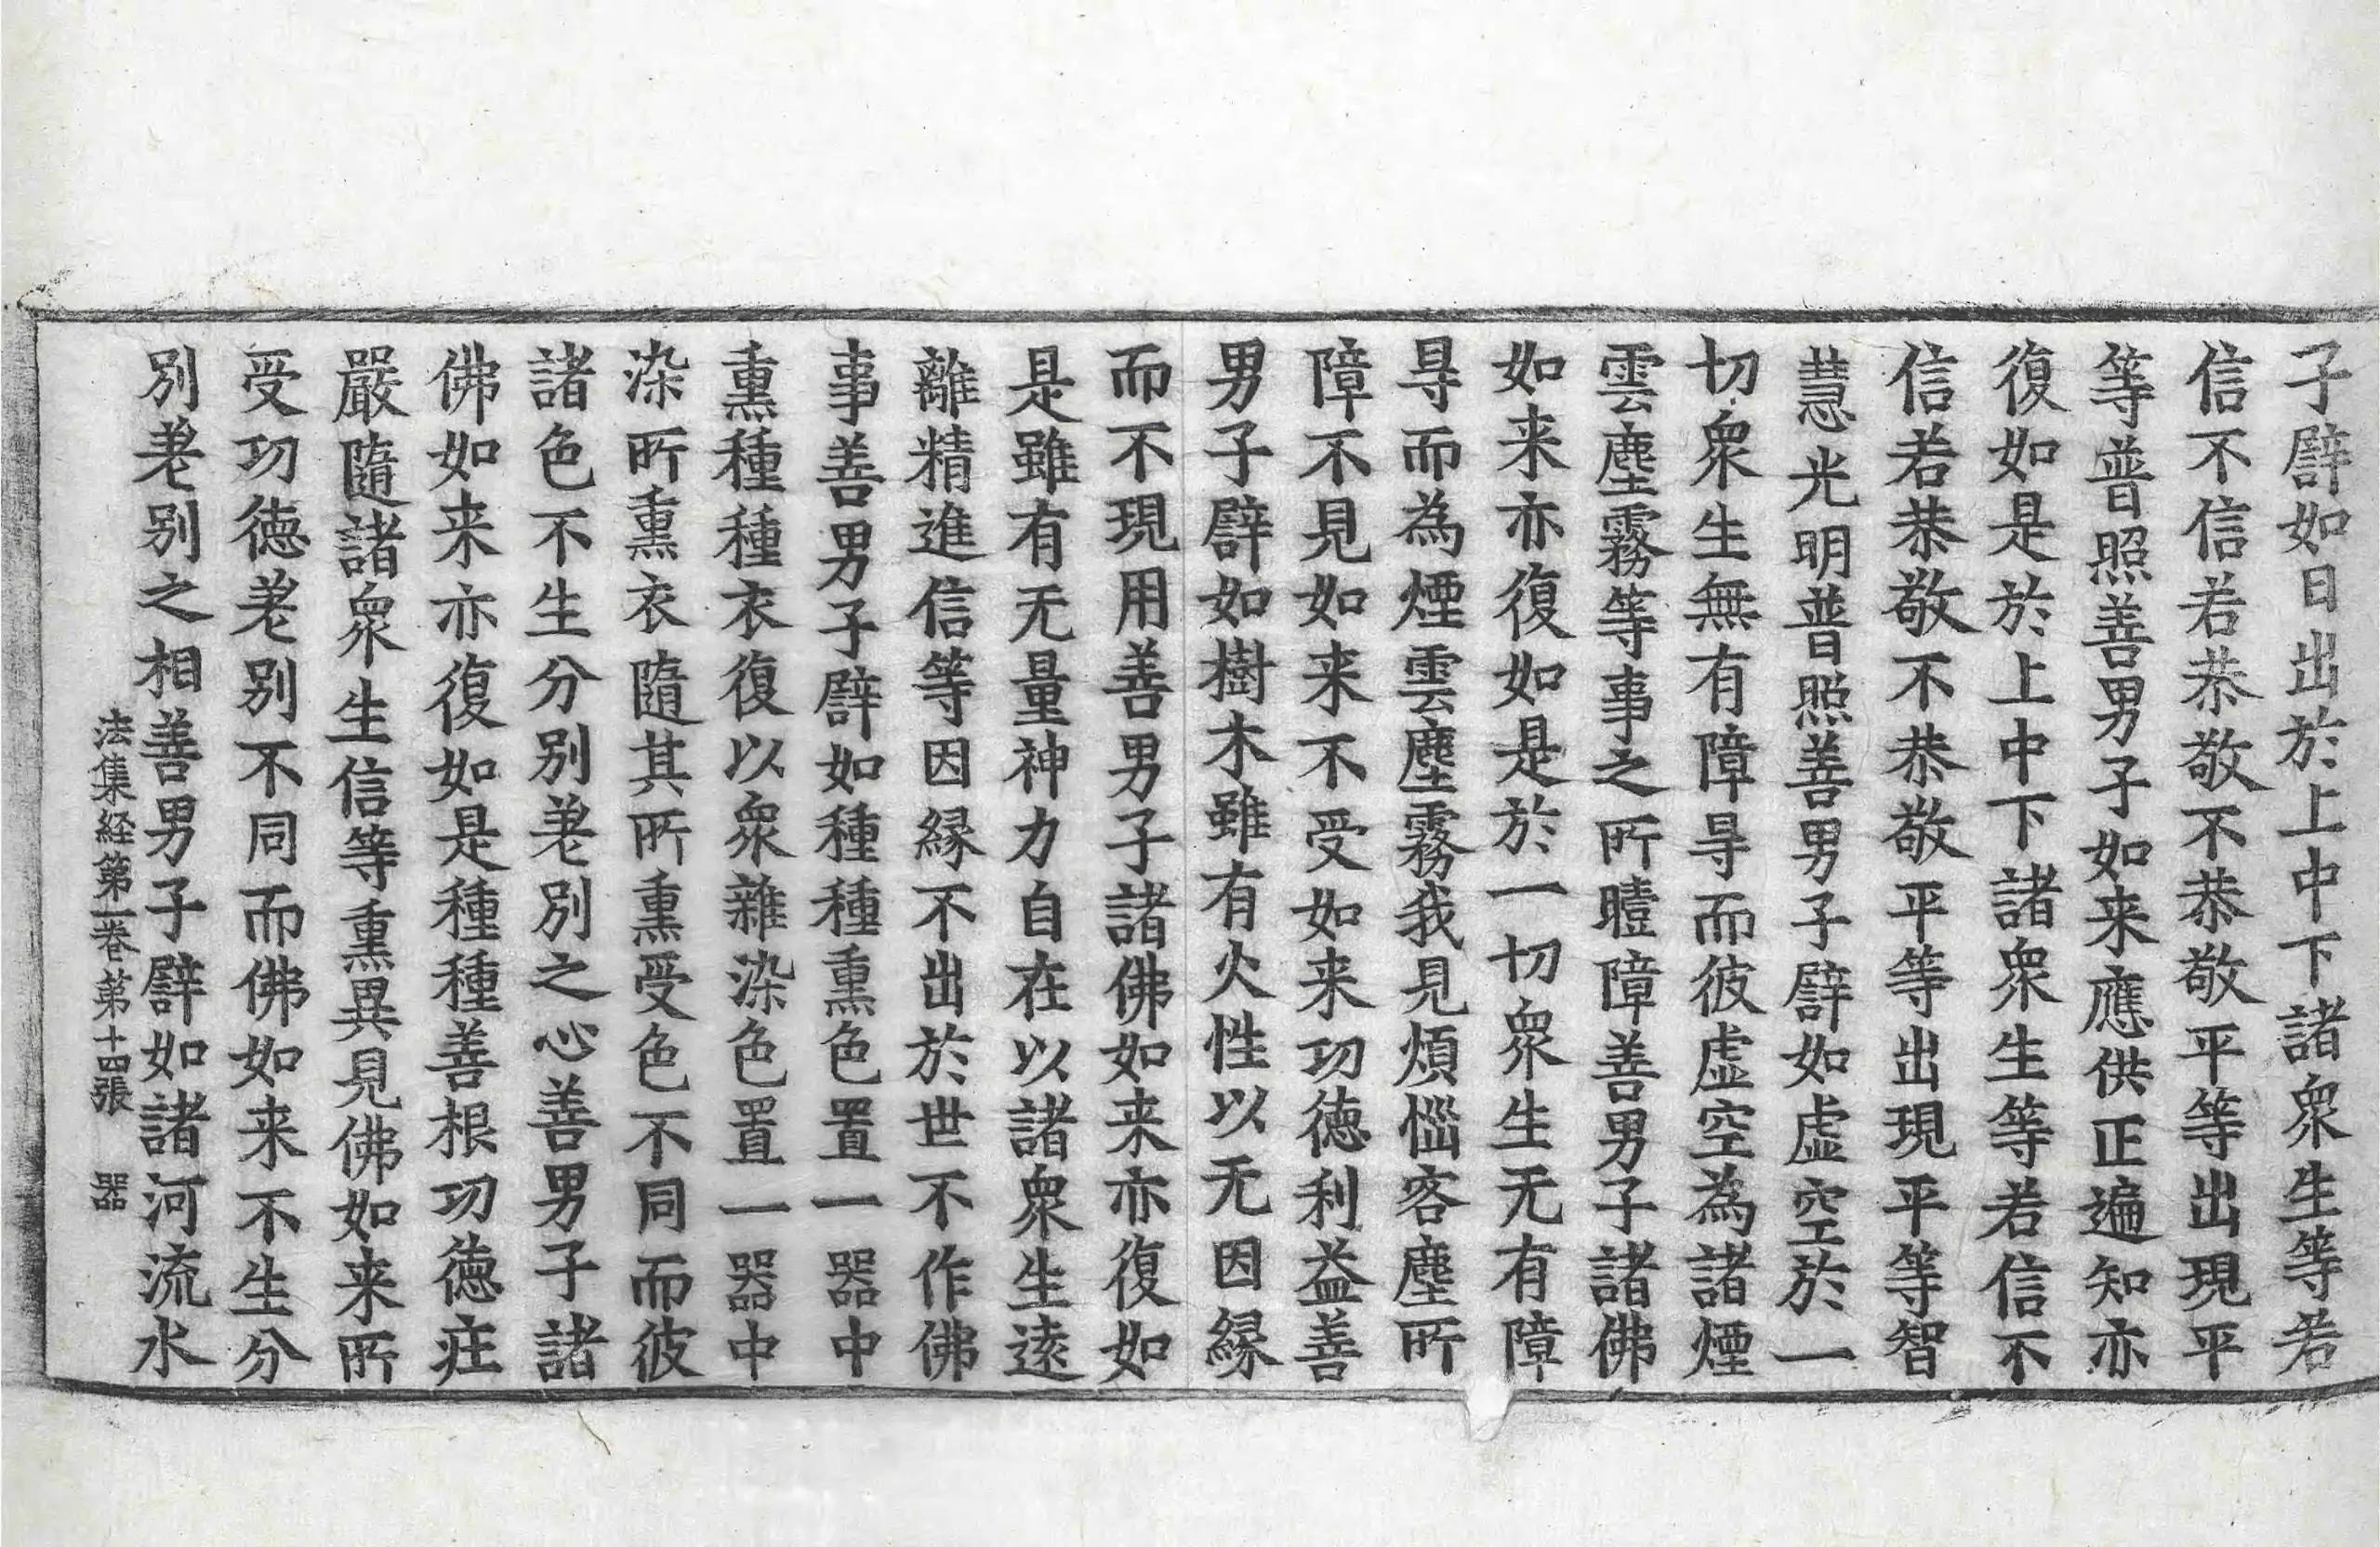 子譬如日出於上中下諸衆生等若
信不信若恭敬不恭敬平等出現平
等普照善男子如来應供正遍知亦
復如是於上中下諸衆生等若信不
信若恭敬不恭敬平等出現平等智
慧光明普照善男子譬如虛空於一
切衆生無有障㝵而彼虛空為諸煙
雲塵霧等事之所曀障善男子諸佛
如来亦復如是於一切衆生无有障
㝵而為煙雲塵霧我見煩惱客塵所
障不見如来不受如来功德利益善
男子譬如樹木雖有火性以无因緣
而不現用善男子諸佛如来亦復如
是雖有无量神力自在以諸衆生遠
離精進信等因緣不出於世不作佛
事善男子譬如種種熏色置一器中
熏種種衣復以衆雜染色置一器中
染所熏衣隨其所熏受色不同而彼
諸色不生分別差別之心善男子諸
佛如来亦復如是種種善根功德莊
嚴隨諸衆生信等熏異見佛如来所
受功德差別不同而佛如来不生分
別差別之相善男子譬如諸河流水
法集経第一卷第十四張 器